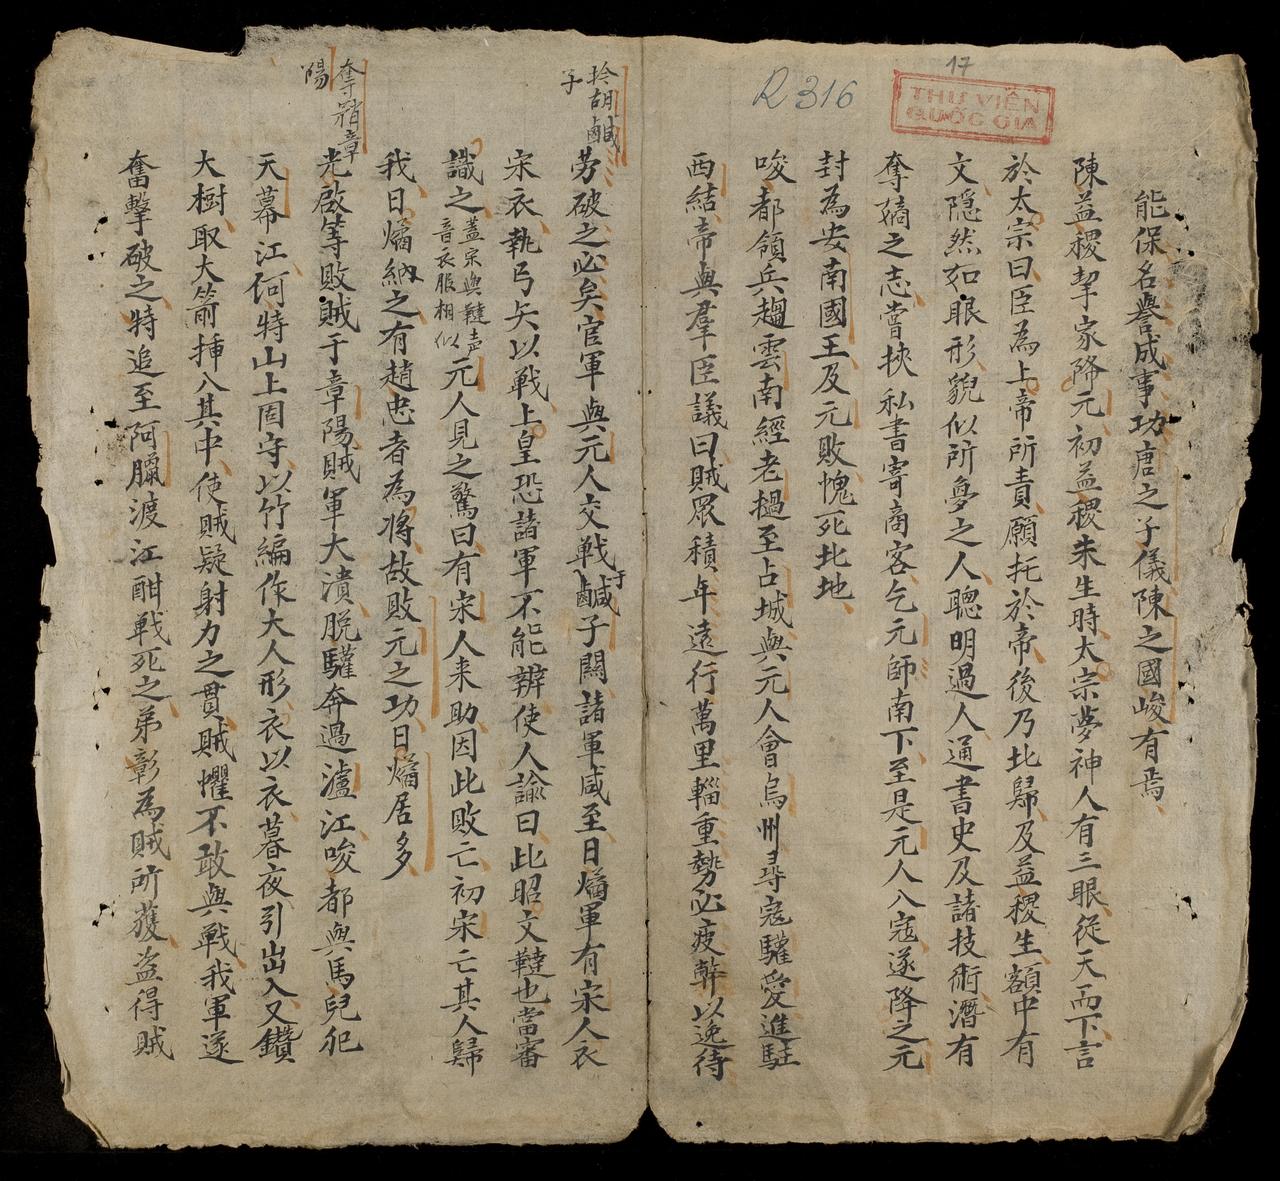 17
R 316
THƯ VIỆN
QUỐC GIA
能保名譽成事功唐之子儀陳之國峻有焉
陳益稷挈家降元初益稷未生時太宗夢神人有三眼從天而下言
於太宗曰臣為上帝所責願托於帝後乃北歸及益稷生額中有
文隱然如眼形貌似所夢之人聰明過人通書史及諸技術潛有
奪嫡之志嘗挾私書寄商客乞元師南下至是元人入寇遂降之元
封為安南國王及元敗愧死北地
唆都領兵趨雲南經老撾至占城與元人會烏州尋寇驩愛進駐
西結帝與羣臣議曰賊眾積年遠行萬里輜重勢必疲弊以逸待
拎胡鹹
子
勞破之必矣官軍與元人交戰于鹹子關諸軍咸至日燏軍有宋人衣
宋衣執弓矢以戰上皇恐諸軍不能辨使人諭曰此昭文韃也當審
識之蓋宋與韃声音衣服相似元人見之驚曰有宋人来助因此敗亡初宋亡其人歸
我日燏納之有趙忠者為將故敗元之功日燏居多
奪矟章
陽
光啟等敗賊于章陽賊軍大潰脱驩奔過瀘江唆都與馬兒犯
天幕江何特山上固守以竹編作大人形衣以衣暮夜引出入又鑽
大樹取大箭揷入其中使賊疑射力之貫賊懼不敢與戰我軍遂
奮擊破之特追至阿臘渡江酣戰死之弟彰為賊所獲盜得賊